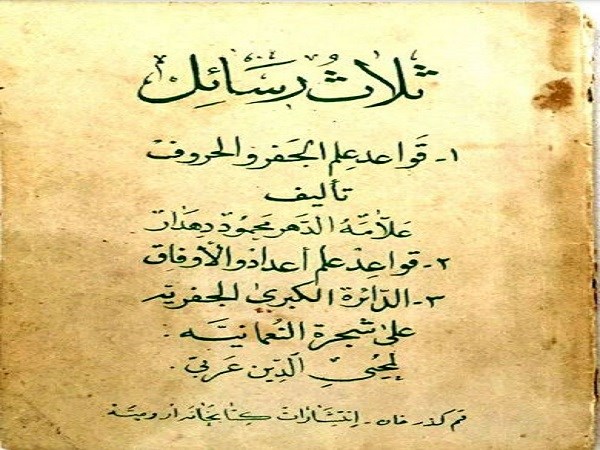 ثلاث رسائل
١- قواعد علم الجفر والحروف
تأليف
علامه الدهر محمود دهدار
٢- قواعد علم أعداد والأوفاق
٣- الدائرة الكبرى الجفرية
على شجرة النعمانية .
لمحيي الدين عربي .
قم گذر خان - انتشارات كتابخانه اروميه